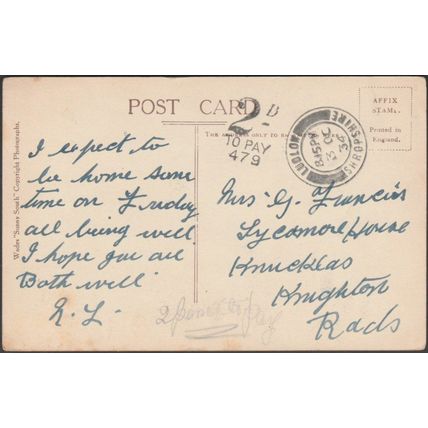 POST CARD
THE ADDRESS ONLY TO BE
AFFIX
STAMP.
Printed in
England.
2D
TO PAY
479
LUDLOW SHROPSHIRE
8 45 PM
3 OC
34
Wades "Sunny South" Copyright Photographs.
I expect to
be home some
time on Friday
all being well
I hope you are
Both well
Mrs G. Francis
Sycamore House
Knucklas
Knighton
Rads
2 pence to pay